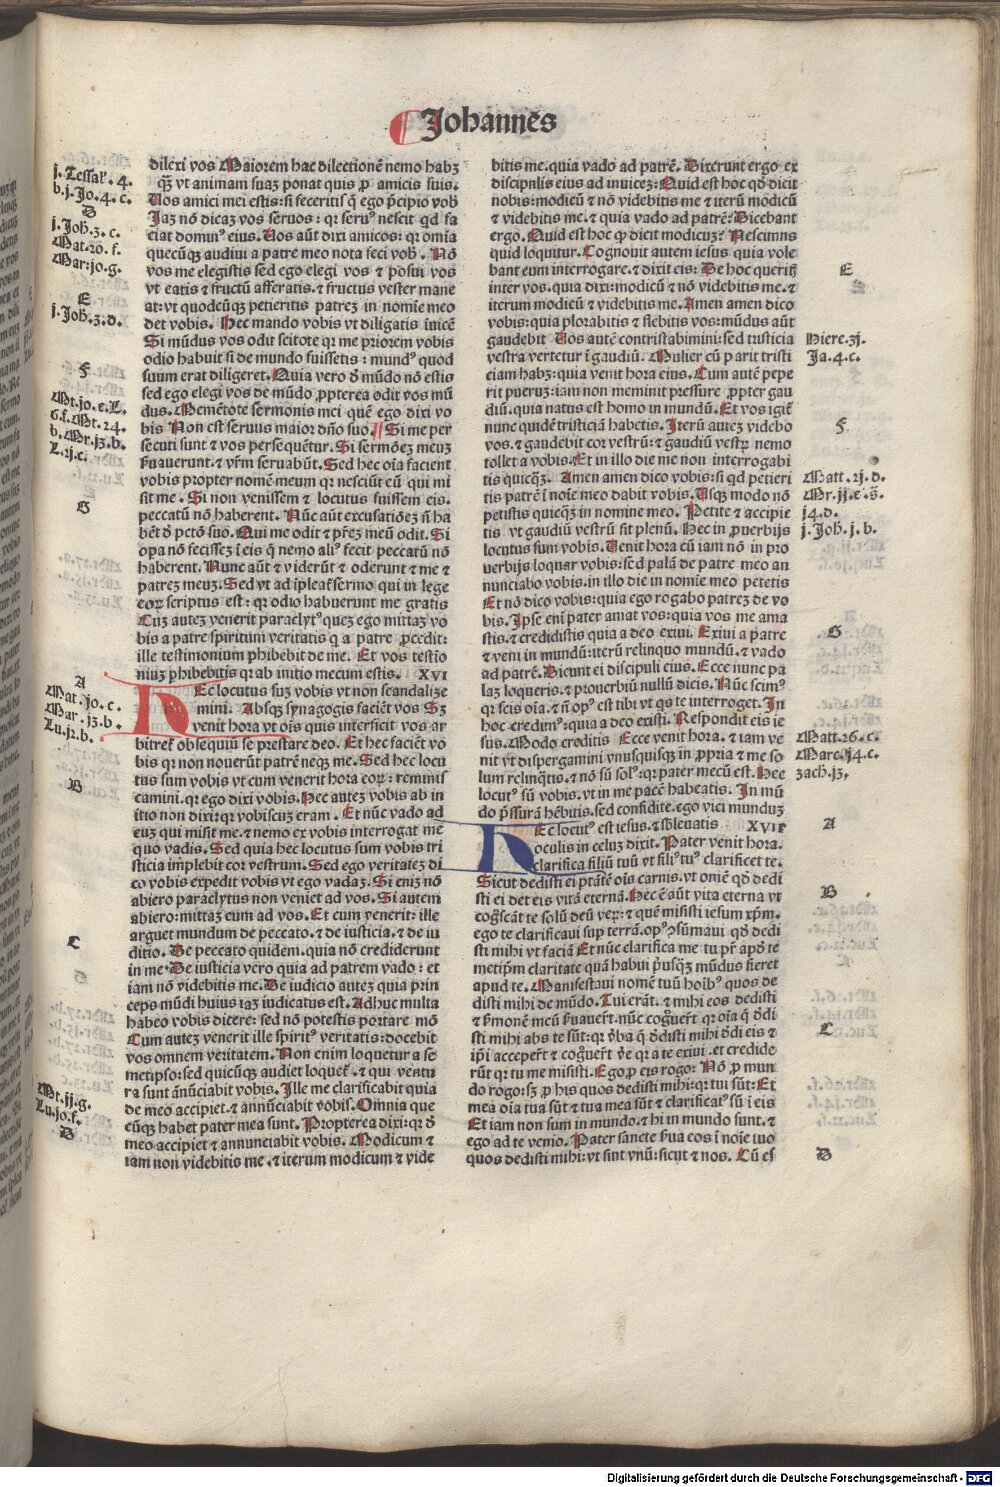 Johannes
j. Tessal. 4.
b. j. Jo. 4. c.
D
j. Joh. 3. c.
Mat. 20. f.
Mar. jo. g.
E
j. Joh. 3. d.
F
Mt. jo. e. L.
6. f. Mt. 24.
b. Mr. j3. b.
L. 2j. c.
G
A
Mat. jo. c.
Mar. j3. b.
Lu. j2. b.
B
C
Mt. jj. g.
Lu. jo. f.
D
dilexi vos Maiorem hac dilectionē nemo habꝫ
qꝫ vt animam suaꝫ ponat quis ꝓ amicis suis.
Vos amici mei estis: si feceritis q̄ ego p̄cipio vob̄
Jaꝫ nō dicaꝫ vos seruos: qꝛ seruꝰ nescit qd̄ fa
ciat dominꝰ eius. Vos aūt dixi amicos: qꝛ om̄ia
quecūqꝫ audiui a patre meo nota feci vob̄. Nō
vos me elegistis sed ego elegi vos ⁊ posui vos
vt eatis ⁊ fructū afferatis. ⁊ fructus vester mane
at: vt quodcūqꝫ petieritis patreꝫ in noīe meo
det vobis. Hec mando vobis vt diligatis inuicē
Si mūdus vos odit scitote qꝛ me priorem vobis
odio habuit si de mundo fuissetis: mundꝰ quod
suum erat diligeret. Quia vero d̄ mūdo nō estis
sed ego elegi vos de mūdo ꝓpterea odit vos mū
dus. Memētote sermonis mei quē ego dixi vo
bis Non est seruus maior dn̄o suo. Si me per
secuti sunt ⁊ vos persequētur. Si sermōeꝫ meuꝫ
ẜuauerunt. ⁊ vr̄m seruabūt. Sed hec oīa facient
vobis propter nomē meum qꝛ nesciūt eū qui mi
sit me. Si non venissem ⁊ locutus fuissem eis.
peccatū nō haberent. Nūc aūt excusatiōeꝫ n̄ ha
bēt d̄ pctō suo. Qui me odit ⁊ pr̄eꝫ meū odit. Si
opa nō fecisseꝫ ī eis q̄ nemo aliꝰ fecit peccatū nō
haberent. Nunc aūt ⁊ viderūt ⁊ oderunt ⁊ me ⁊
patreꝫ meuꝫ. Sed vt adīpleat᷑ sermo qui in lege
eoꝝ scriptus est: qꝛ odio habuerunt me gratis
Cuꝫ auteꝫ venerit paraclytꝰ queꝫ ego mittaꝫ vo
bis a patre spiritum veritatis q̄ a patre ꝓcedit:
ille testimonium phibebit de me. Et vos testīo
niuꝫ phibebitis qꝛ ab initio mecum estis. XVI
HEc locutus suꝫ vobis vt non scandalize
mini. Absqꝫ synagogis faciēt vos Sꝫ
venit hora vt oīs quis interficit vos ar
bitret᷑ obsequiū se prestare deo. Et hec faciēt vo
bis qꝛ non nouerūt patrē neqꝫ me. Sed hec locu
tus sum vobis vt cum venerit hora eoꝝ: reminis
camini. qꝛ ego dixi vobis. Hec auteꝫ vobis ab in
itio non dixi: qꝛ vobiscuꝫ eram. Et nūc vado ad
euꝫ qui misit me. ⁊ nemo ex vobis interrogat me
quo vadis. Sed quia hec locutus sum vobis tri
sticia īmplebit cor vestrum. Sed ego veritateꝫ di
co vobis expedit vobis vt ego vadaꝫ. Si eniꝫ nō
abiero paraclytus non veniet ad vos. Si autem
abiero: mittaꝫ eum ad vos. Et cum venerit: ille
arguet mundum de peccato. ⁊ de iusticia. ⁊ de iu
ditio. De peccato quidem. quia nō crediderunt
in me. De iusticia vero quia ad patrem vado: et
iam nō videbitis me. De iudicio auteꝫ quia prin
ceps mūdi huius iaꝫ iudicatus est. Adhuc multa
habeo vobis dicere: sed nō potestis portare mō
Cum auteꝫ venerit ille spiritꝰ veritatis: docebit
vos omnem veritatem. Non enim loquetur a se
metipso: sed quicūqꝫ audiet loquet᷑. ⁊ qui ventu
ra sunt ānūciabit vobis. Jlle me clarificabit quia
de meo accipiet. ⁊ annūciabit vobis. Omnia que
cūqꝫ habet pater mea sunt. Propterea dixi: qꝛ d̄
meo accipiet ⁊ annunciabit vobis. Modicum ⁊
iam non videbitis me. ⁊ iterum modicum ⁊ vide
bitis me. quia vado ad patrē. Dixerunt ergo ex
discipulis eius ad inuiceꝫ: Quid est hoc qd̄ dicit
nobis: modicū ⁊ nō videbitis me ⁊ iterū mōdicū
⁊ videbitis me. ⁊ quia vado ad patrē? Dicebant
ergo. Quid est hoc qd̄ dicit modicuꝫ? Nescimus
quid loquitur. Cognouit autem iesus quia vole
bant eum interrogare. ⁊ dixit eis: De hoc querit᷑
inter vos. quia dixi: modicū ⁊ nō videbitis me. ⁊
iterum modicū ⁊ videbitis me. Amen amen dico
vobis: quia plorabitis ⁊ flebitis vos: mūdus aūt
gaudebit Vos autē contristabimini: sed tristicia
vestra vertetur ī gaudiū. Mulier cū parit tristi
ciam habꝫ: quia venit hora eius. Cum autē pepe
rit pueruꝫ: iam non meminit pressure ꝓpter gau
diū. quia natus est homo in mundū. Et vos igit᷑
nunc quidē tristiciā habetis. Jterū auteꝫ videbo
vos. ⁊ gaudebit cor vestrū: ⁊ gaudiū vestꝝ nemo
tollet a vobis. Et in illo die me non interrogabi
tis quicqꝫ. Amen amen dico vobis: si qd̄ petieri
tis patrē ī noīe meo dabit vobis. Usqꝫ modo nō
petistis quicqꝫ in nomine meo. Petite ⁊ accipie
tis vt gaudiū vestrū sit plenū. Hec in ꝓuerbijs
locutus sum vobis. Venit hora cū iam nō in pro
uerbijs loquar vobis: sed palā de patre meo an
nunciabo vobis. in illo die in nomīe meo petetis
Et nō dico vobis: quia ego rogabo patreꝫ de vo
bis. Jpse enī pater amat vos: quia vos me ama
stis. ⁊ credidistis quia a deo exiui. Exiui a patre
⁊ veni in mundū: iterū relinquo mundū. ⁊ vado
ad patrē. Dicunt ei discipuli eius. Ecce nunc pa
laꝫ loqueris. ⁊ ꝓuerbiū nullū dicis. Nūc scimꝰ
qꝛ scis oīa. ⁊ n̄ opꝰ est tibi vt qs te interroget. Jn
hoc credimꝰ: quia a deo existi. Respondit eis ie
sus. Modo creditis Ecce venit hora. ⁊ iam ve
nit vt dispergamini vnusquisqꝫ in ꝓpria ⁊ me so
lum relinq̄tis. ⁊ nō sū solꝰ: qꝛ pater mecū est. Hec
locutꝰ sū vobis. vt in me pacē habeatis. In mū
do p̄ssurā hēbitis. sed confidite. ego vici munduꝫ
HEc locutꝰ est iesus. ⁊ sb̄leuatis XVII
oculis in celuꝫ dixit. Pater venit hora.
clarifica filiū tuū vt filiꝰ tuꝰ clarificet te.
Sicut dedisti ei ptātē oīs carnis. vt omē qd̄ dedi
sti ei det eis vitā eternā. Hec ē aūt vita eterna vt
cogn̄scāt te solū deū veꝝ: ⁊ quē misisti iesum xp̄m.
ego te clarificaui sup terrā. opꝰ ꝯsūmaui qd̄ dedi
sti mihi vt faciā Et nūc clarifica me tu pr̄ apd̄ te
metip̄m claritate quā habui p̄usqꝫ mūdus fieret
apud te. Manifestaui nomē tuū hoībꝰ quos de
disti mihi de mūdo. Tui erāt. ⁊ mihi eos dedisti
⁊ ẜmonē meū ẜuauer̄t. nūc cogn̄uer̄t qꝛ oīa q̄ d̄di
sti mihi abs te sūt: qꝛ v̄ba q̄ d̄disti mihi d̄di eis ⁊
ip̄i acceper̄t ⁊ cogn̄uer̄t v̄e qꝛ a te exiui. et credide
rūt qꝛ tu me misisti. Ego ꝓ eis rogo: Nō ꝓ mun
do rogo: sꝫ ꝓ his quos dedisti mihi: qꝛ tui sūt: Et
mea oīa tua sūt ⁊ tua mea sūt ⁊ clarificatꝰ sū ī eis
Et iam non sum in mundo. ⁊ hi in mundo sunt. ⁊
ego ad te venio. Pater sancte ẜua eos ī noīe tuo
quos dedisti mihi: vt sint vnū: sicut ⁊ nos. Cū es
E
Hiere. 3j.
Ja. 4. c.
F
Matt. 2j. d.
Mr. jj. e. g.
j4. d.
j. Joh. j. b.
G
Matt. 26. c.
Marc. j4. c.
zach. j3.
A
B
C
D
Digitalisierung gefördert durch die Deutsche Forschungsgemeinschaft - DFG